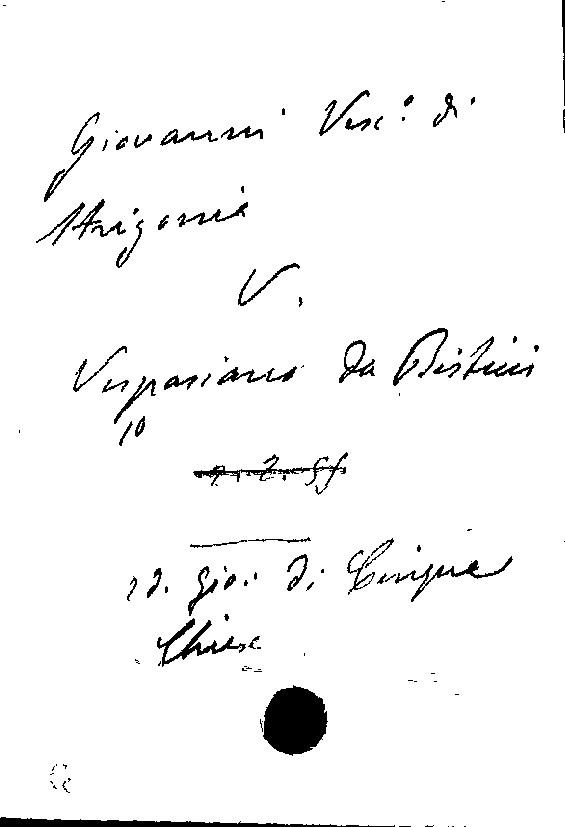 Giovanni Vesc.º di
Strigonia
V.
Vespasiano da Bisticci
10
id. Gio: di Cinque
Chiese